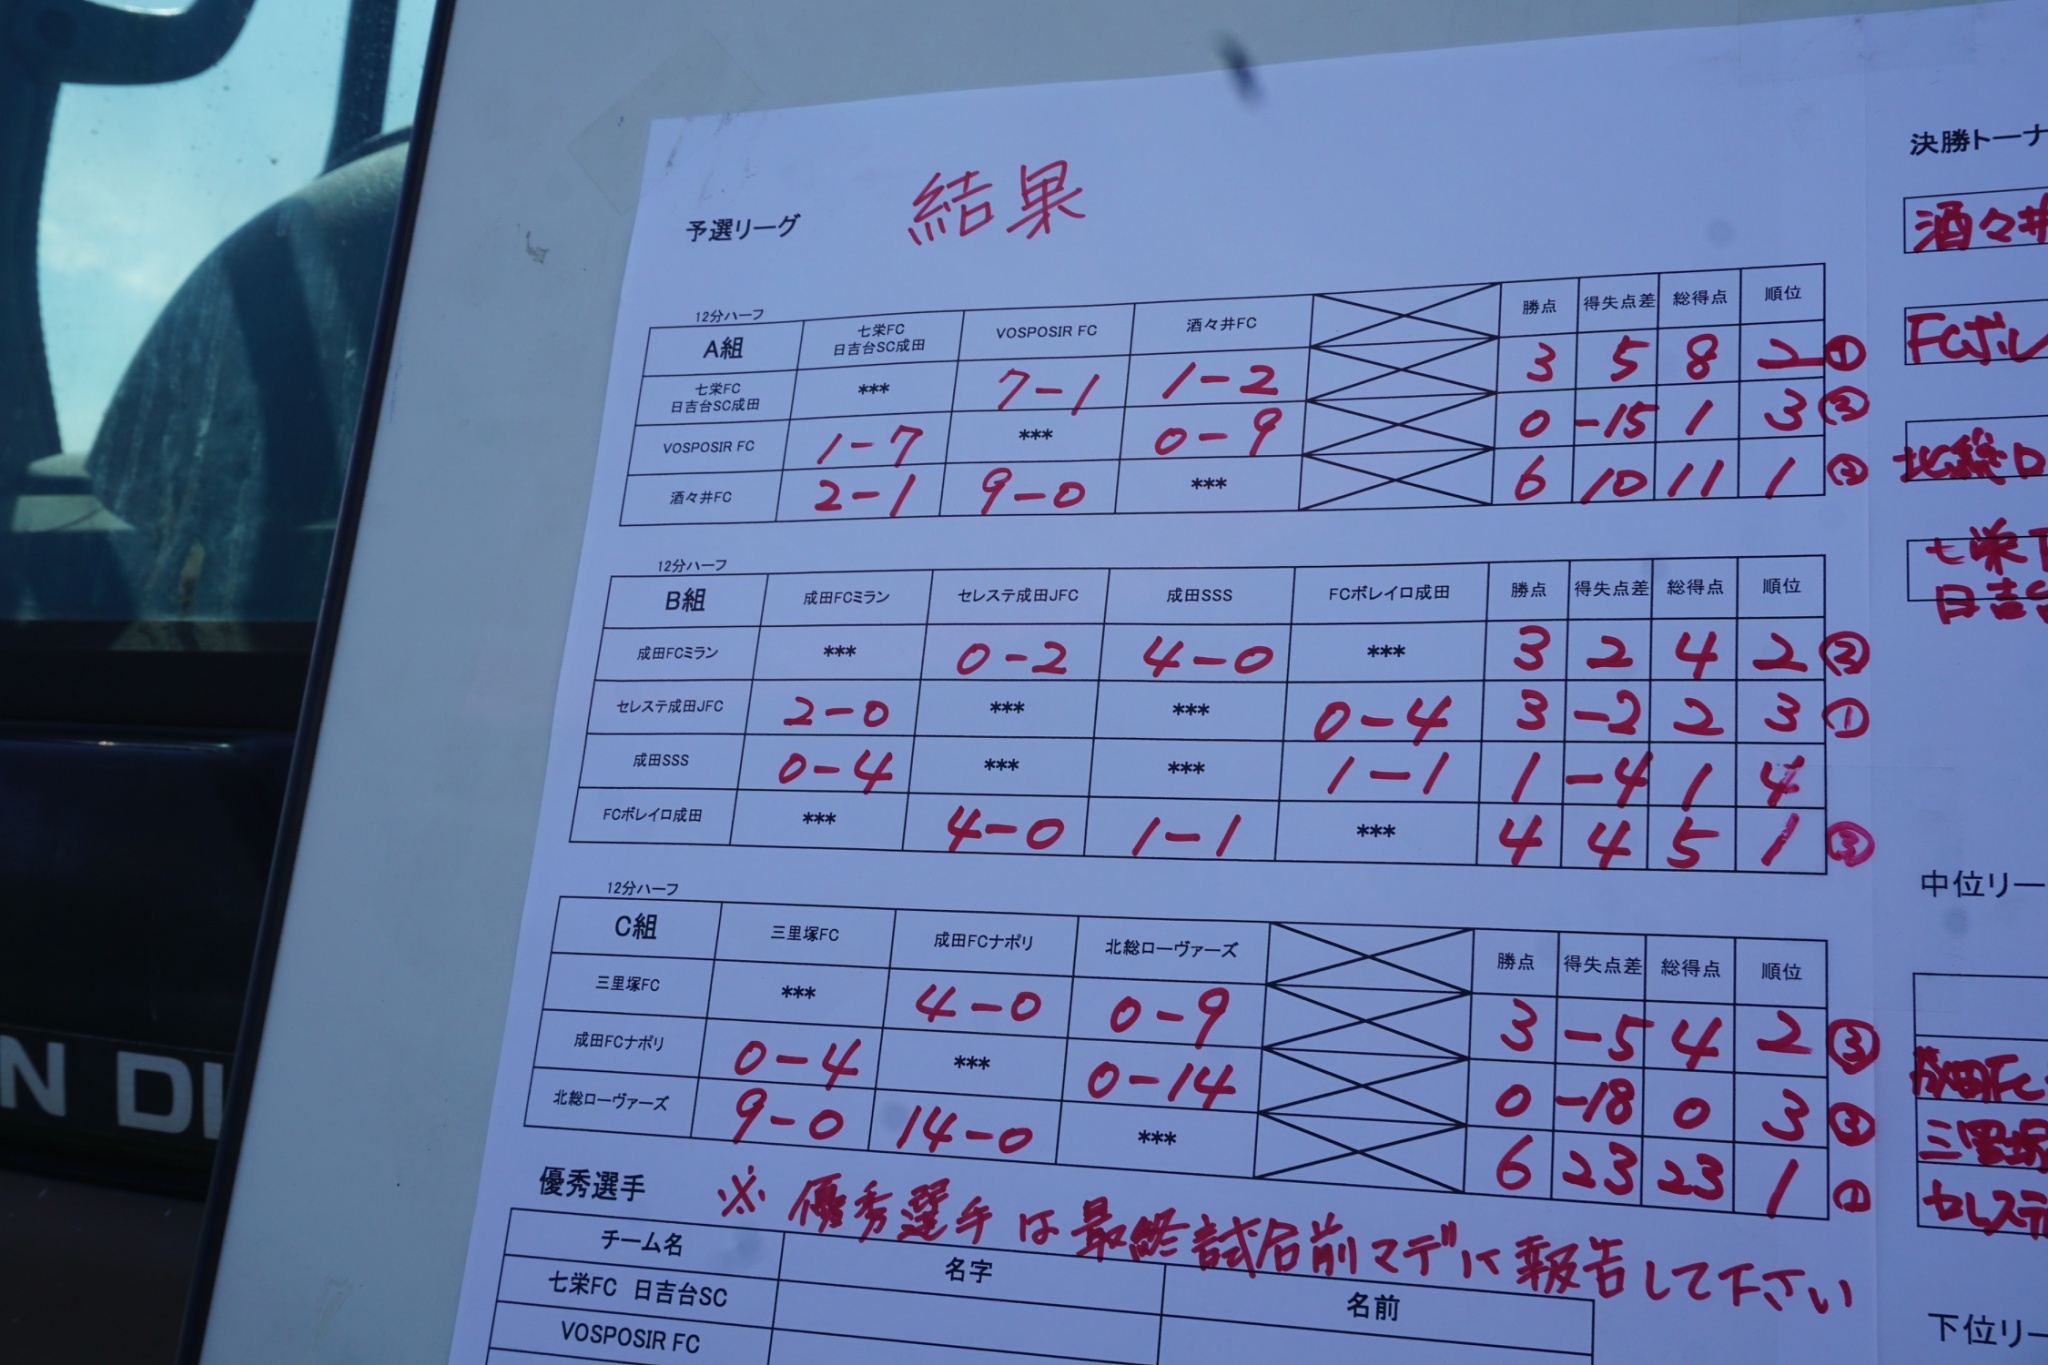 予選リーグ 結果
12分ハーフ
A組 七栄FC 日吉台SC成田 VOSPOSIR FC 酒々井FC 勝点 得失点差 総得点 順位
七栄FC 日吉台SC成田 *** 7-1 1-2 3 5 8 2 ①
VOSPOSIR FC 1-7 *** 0-9 0 -15 1 3
酒々井FC 2-1 9-0 *** 6 10 11 1
12分ハーフ
B組 成田FCミラン セレステ成田JFC 成田SSS FCボレイロ成田 勝点 得失点差 総得点 順位
成田FCミラン *** 0-2 4-0 *** 3 2 4 2 ②
セレステ成田JFC 2-0 *** *** 0-4 3 -2 2 3 ①
成田SSS 0-4 *** *** 1-1 1 -4 1 4
FCボレイロ成田 *** 4-0 1-1 *** 4 4 5 1 ③
12分ハーフ
C組 三里塚FC 成田FCナポリ 北総ローヴァーズ 勝点 得失点差 総得点 順位
三里塚FC *** 4-0 0-9 3 -5 4 2 ③
成田FCナポリ 0-4 *** 0-14 0 -18 0 3
北総ローヴァーズ 9-0 14-0 *** 6 23 23 1
優秀選手 ※優秀選手は最終試合前マデに報告して下さい
チーム名 名字 名前
七栄FC 日吉台SC
VOSPOSIR FC
決勝トーナ
酒々井
FCボレ
北総ロ
七栄F
日吉台
中位リー
成田FC
三里塚
セレステ
下位リー
N DI